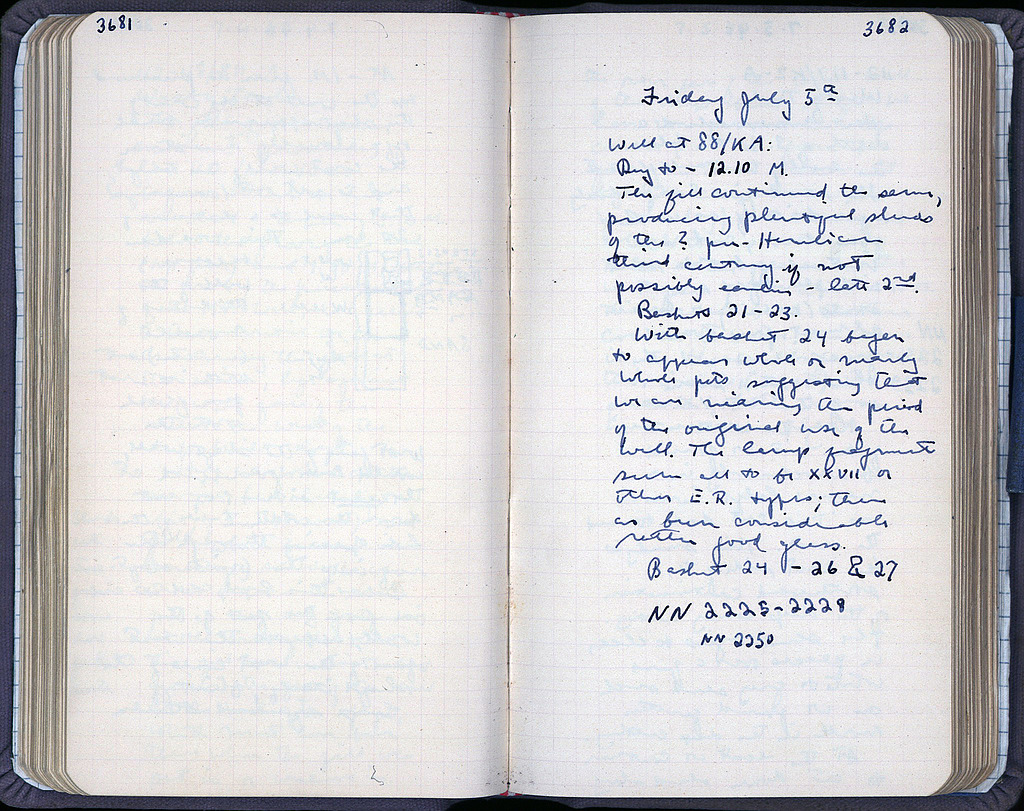 3681
3682
Friday July 5th
Well at 88/KA:
Dug to - 12.10 M.
The fill continued the same,
producing plentiful sherds
of the ? pre-Herulian
third century if not
possibly earlier - late 2nd.
Baskets 21-23.
With basket 24 began
to appear whole or nearly
whole pots suggesting that
we are nearing the period
of the original use of the
well. The lamp fragments
seem all to be XXVII or
other E.R. types; there
has been considerable
rather good glass.
Basket 24 - 26 & 27
NN 2225-2229
NN 2250